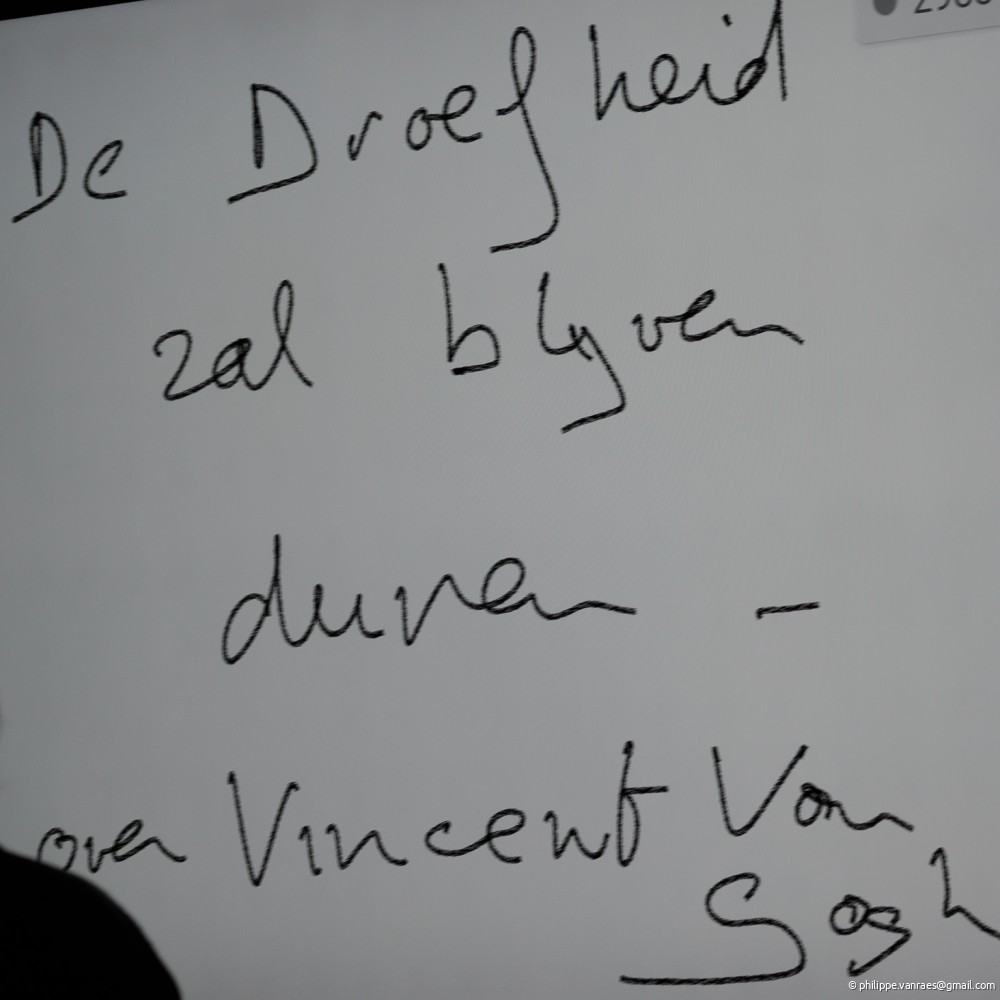 De Droefheid
zal blyven
duren -
over Vincent Van
Gogh
© philippe.vanraes@gmail.com